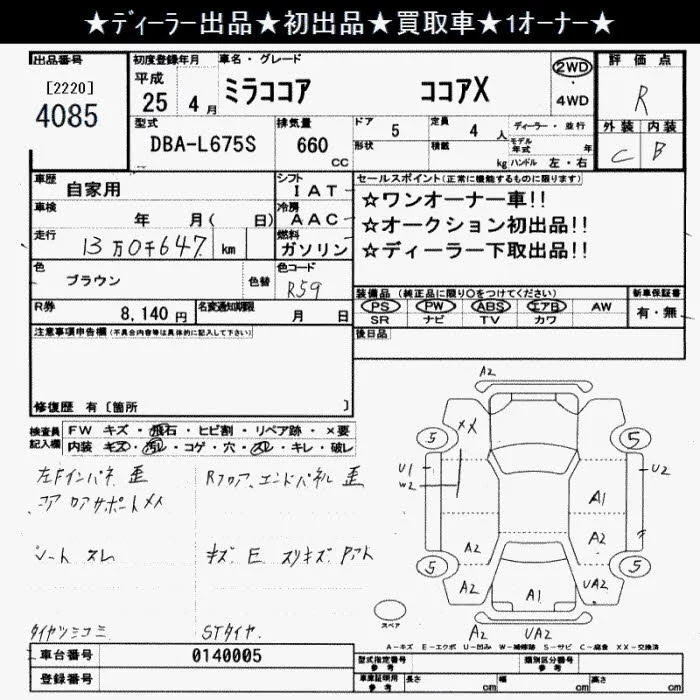 ★ディーラー出品★初出品★買取車★1オーナー★
出品番号
[2220]
4085
初度登録年月
平成
25 4月
車名・グレード
ミラココア ココアX
2WD
・
4WD
評価点
R
型式
DBA-L675S
排気量
660
CC
ドア 5
形状
定員 4 人
積載 kg
ディーラー・並行
モデル年式 年
ハンドル 左・右
外装 内装
C B
車歴 自家用
車検 年 月( 日)
走行 13万0千647 km
シフト
IAT
冷房
AAC
燃料
ガソリン
セールスポイント(正常に機能するものに限ります)
☆ワンオーナー車!!
☆オークション初出品!!
☆ディーラー下取出品!!
色
ブラウン
色替
色コード
R59
装備品(純正品に限り〇をつけてください)
PS PW ABS エアB AW
SR ナビ TV カワ
新車保証書
有・無
R券
8,140円
名変通知期限
月 日
注意事項申告欄(不具合内容等は具体的に記入して下さい)
後日品
修復歴 有[箇所 ]
検査員記入欄
FW キズ・飛石・ヒビ割・リペア跡・×要
内装 キズ・汚レ・コゲ・穴・スレ・キレ・破レ
左Fインパネ 歪 Rフロア、エンドパネル 歪
コア ロアサポートメメ
シート スレ キズ E スリキズ アクト
タイヤツミコミ STタイヤ.
A2
XX
5 5
U1
W2
U2
A1
A2 A2
5 5
A2 A1 UA2
A2 UA2
スペア
A-キズ E-エクボ U-凹み W-補修跡 S-サビ C-腐食 XX-交換済
車台番号 0140005
登録番号
型式指定番号
参考
類別区分番号
参考
車庫証明用
参考
長さ cm 幅 cm 高さ cm